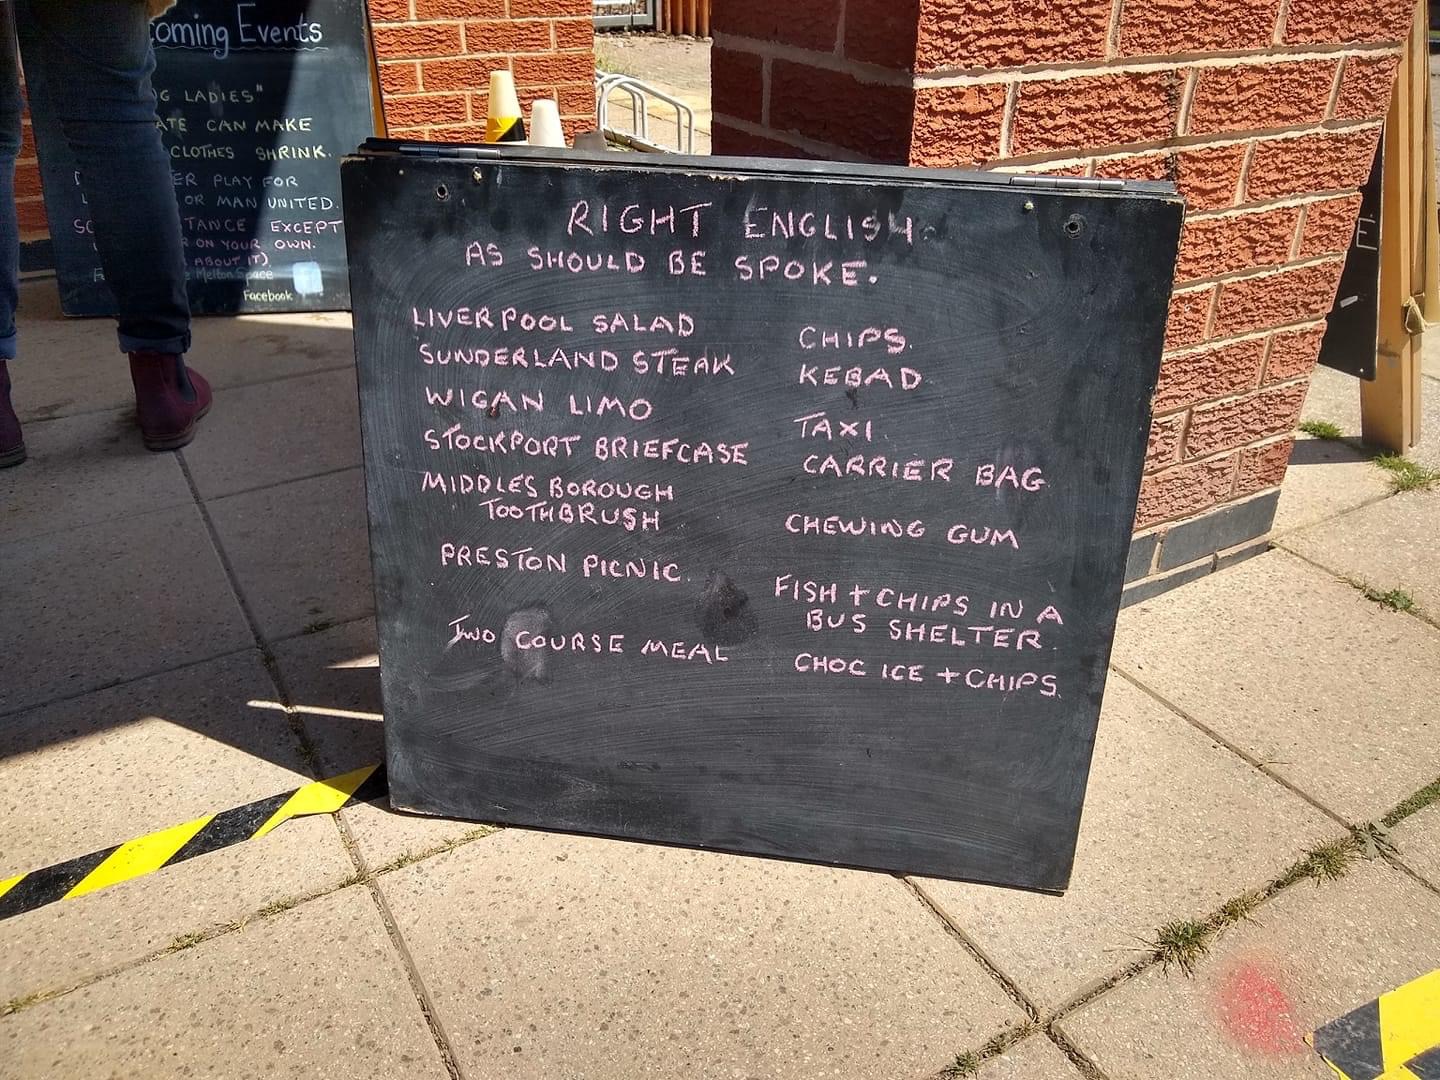 oming Events
G LADIES"
ATE CAN MAKE
CLOTHES SHRINK.
ER PLAY FOR
OR MAN UNITED.
TANCE EXCEPT
R ON YOUR OWN.
ABOUT IT)
Melton Space
Facebook
RIGHT ENGLISH
AS SHOULD BE SPOKE.
LIVERPOOL SALAD CHIPS.
SUNDERLAND STEAK KEBAD
WIGAN LIMO TAXI
STOCKPORT BRIEFCASE CARRIER BAG
MIDDLESBOROUGH
TOOTHBRUSH CHEWING GUM
PRESTON PICNIC. FISH + CHIPS IN A
BUS SHELTER.
TWO COURSE MEAL CHOC ICE + CHIPS.
E